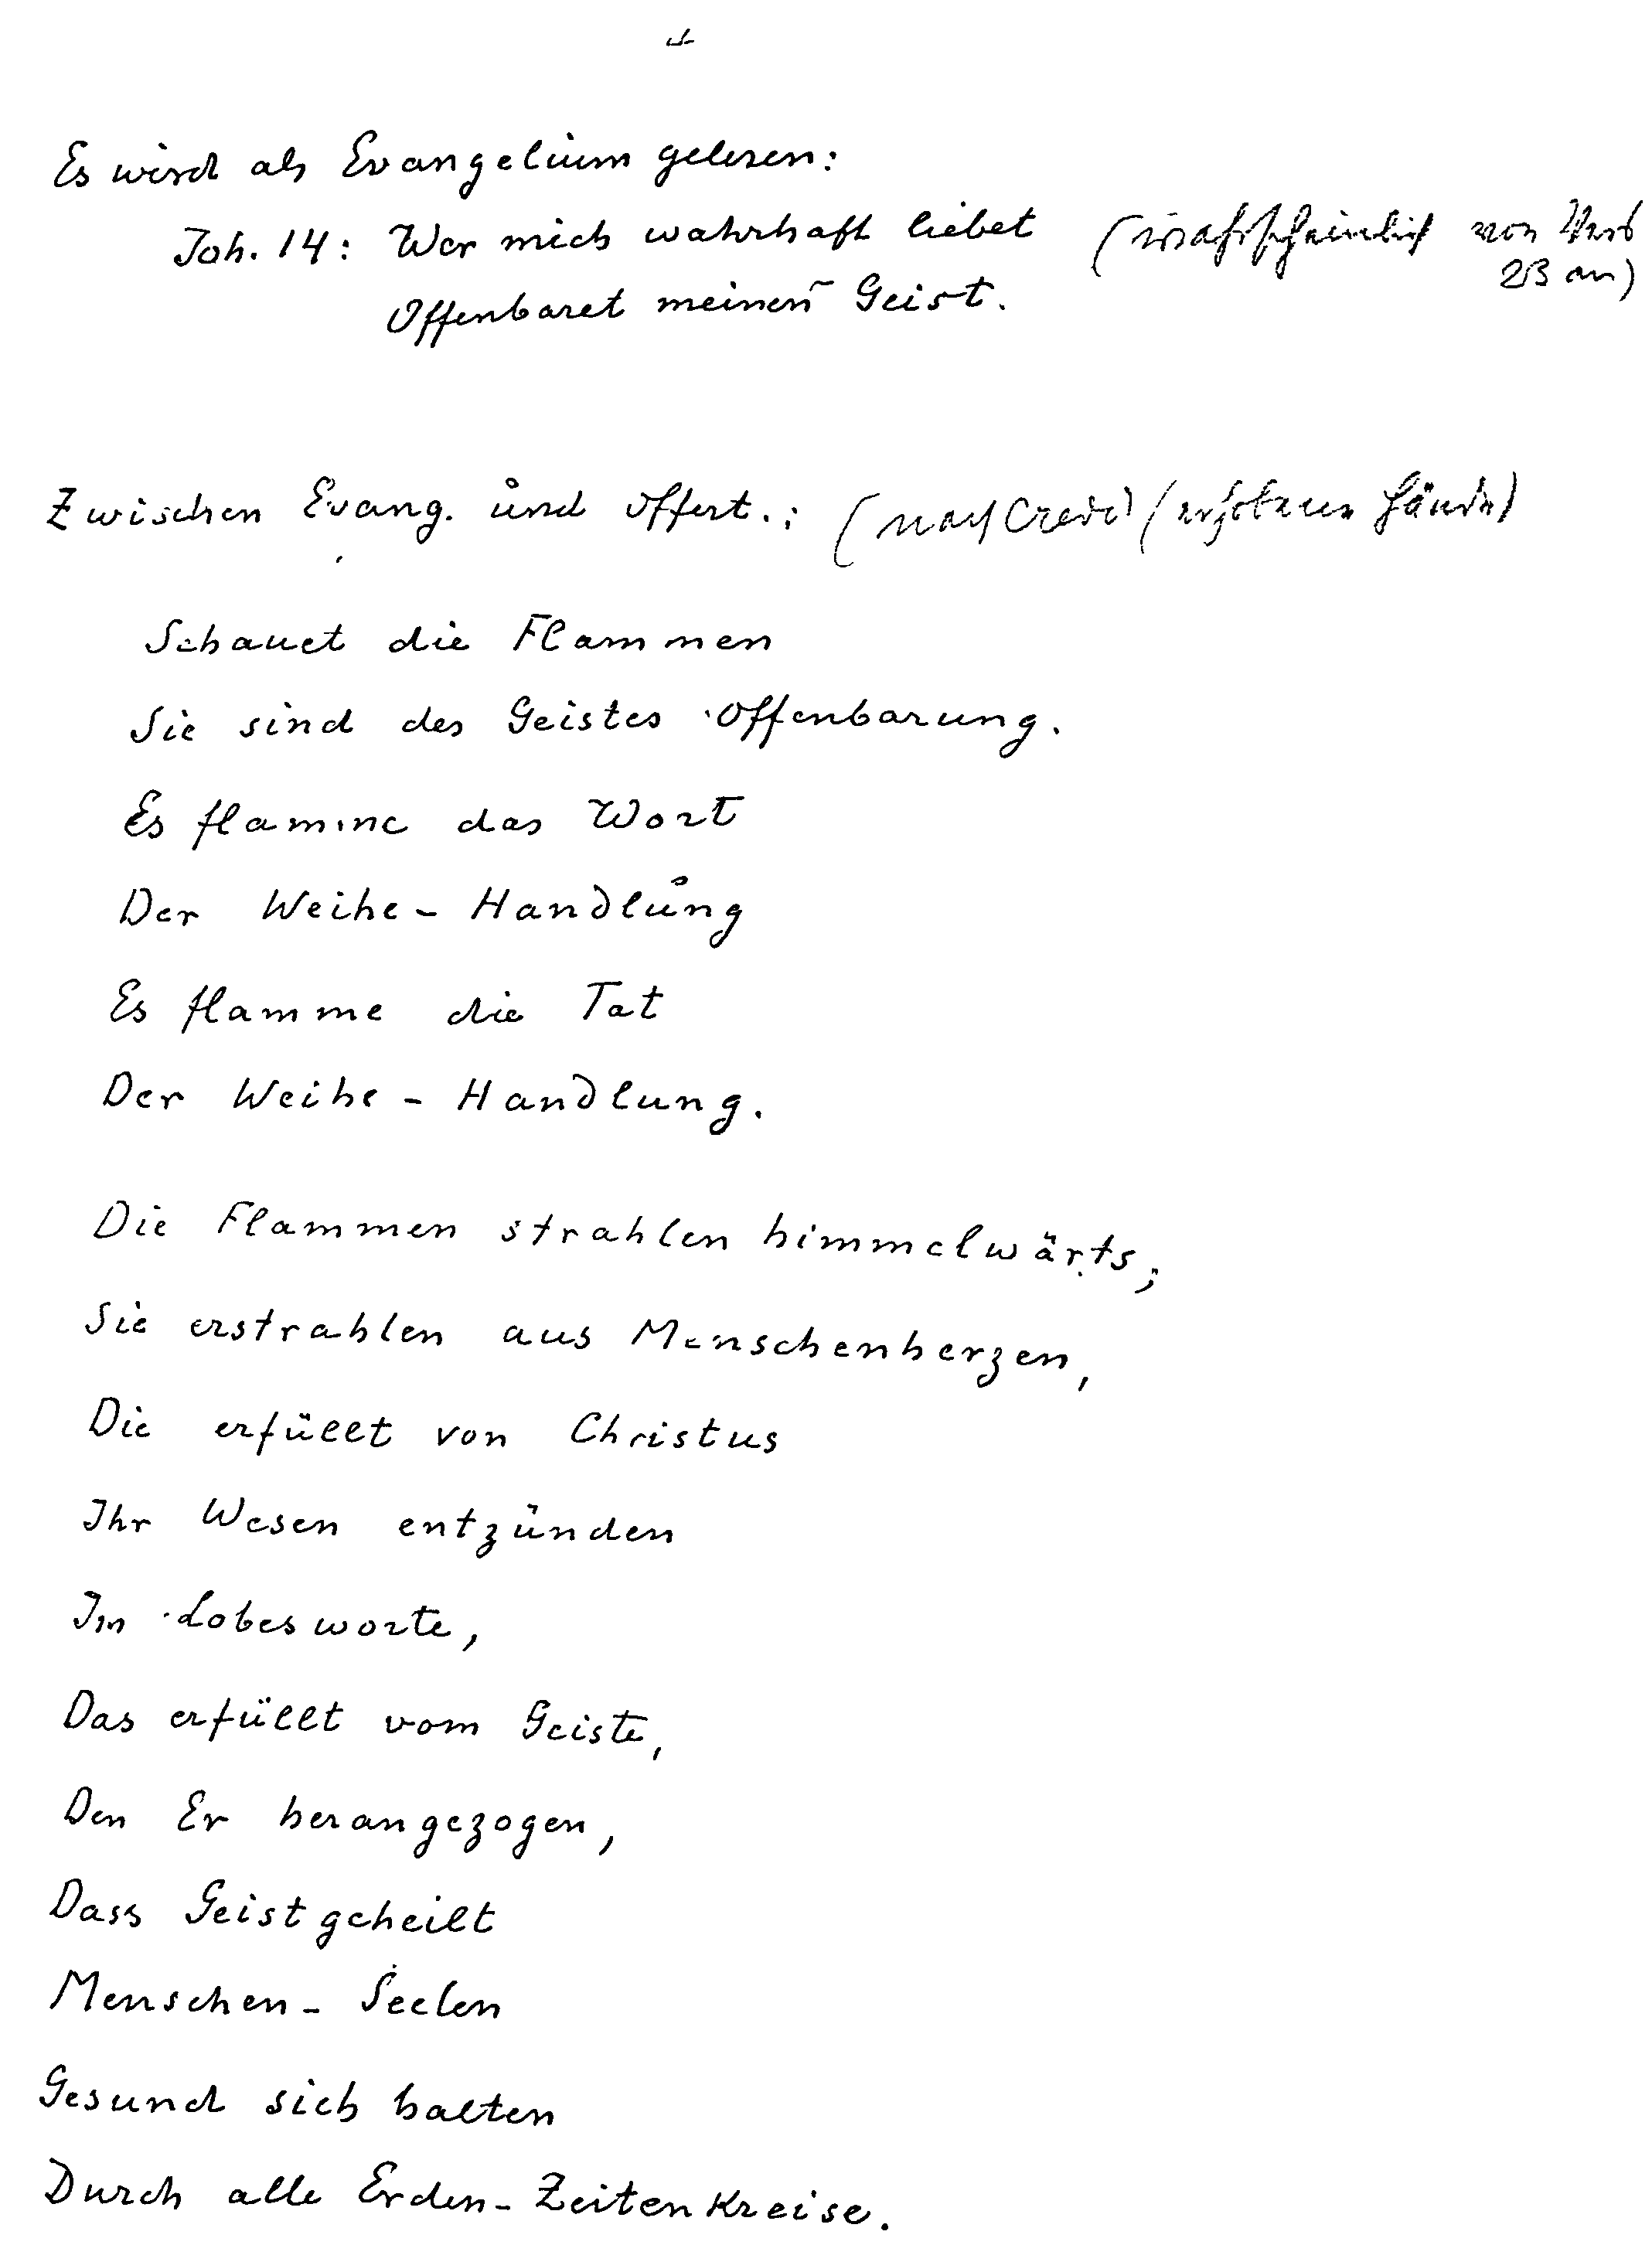 Es wird als Evangelium gelesen:
Joh. 14: Wer mich wahrhaft liebet (wahrscheinlich von Vers
23 an)
Offenbaret meinen Geist.
Zwischen Evang. und Offert.: (nach Credo) (erhobene Hände)
Schauet die Flammen
Sie sind des Geistes Offenbarung.
Es flamme das Wort
Der Weihe-Handlung
Es flamme die Tat
Der Weihe-Handlung.
Die Flammen strahlen himmelwärts;
Sie erstrahlen aus Menschenherzen,
Die erfüllt von Christus
Ihr Wesen entzünden
Im Lobesworte,
Das erfüllt vom Geiste,
Den Er herangezogen,
Dass Geistgeheilt
Menschen-Seelen
Gesund sich halten
Durch alle Erden-Zeitenkreise.